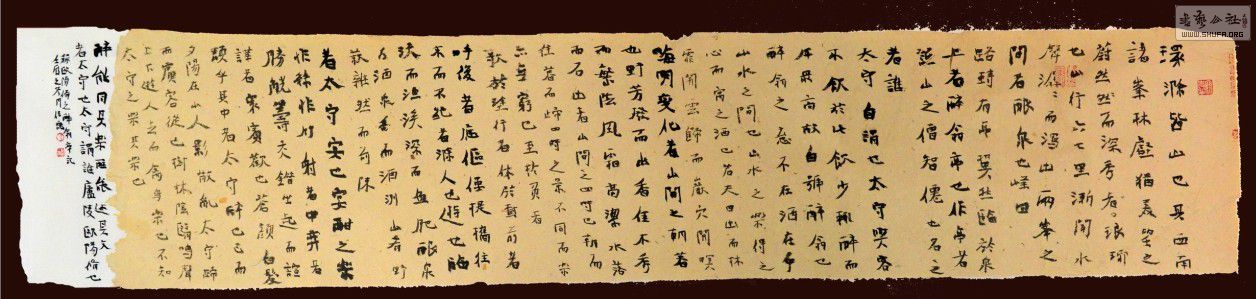 環滁皆山也其西南
諸峯林壑猶美望之
蔚然而深秀者琅琊
也山行六七里漸聞水
聲潺〻而瀉出兩峯之
間者釀泉也峰回
路轉有亭翼然臨於泉
上者醉翁亭也作亭者
誰山之僧智僊也名之
者誰
太守自謂也太守與客
來飲於此飲少輒醉而
年最高故自號醉翁也
醉翁之意不在酒在乎
山水之間也山水之樂得之
心而寓之酒也若夫日出而林
霏開雲歸而巖穴間暝
晦明變化者山間之朝暮
也野芳發而幽香佳木秀
而繁陰風霜高潔水落
而石出者山間之四時也朝而
往暮而歸四時之景不同而樂
亦無窮也至於負者
歌於塗行者休於樹前者
呼後者應傴僂提攜往
來而不絕者滁人也遊也臨
溪而漁溪深而魚肥釀泉
為酒泉香而酒洌山肴野
蔌雜然而前陳
者太守宴也宴酣之樂
非絲非竹射者中弈者
勝觥籌交錯坐起而諠
譁者眾賓歡也蒼顏白髮
頹乎其中者太守醉也已而
夕陽在山人影散亂太守歸
而賓客從也樹林陰翳鳴聲
上下遊人去而禽鳥樂也不知
太守之樂其樂也
醉能同其樂醒能述其文
者太守也太守謂誰廬陵歐陽脩也
歐陽脩之醉翁亭記
書藝公社
WWW.SHUFA.ORG